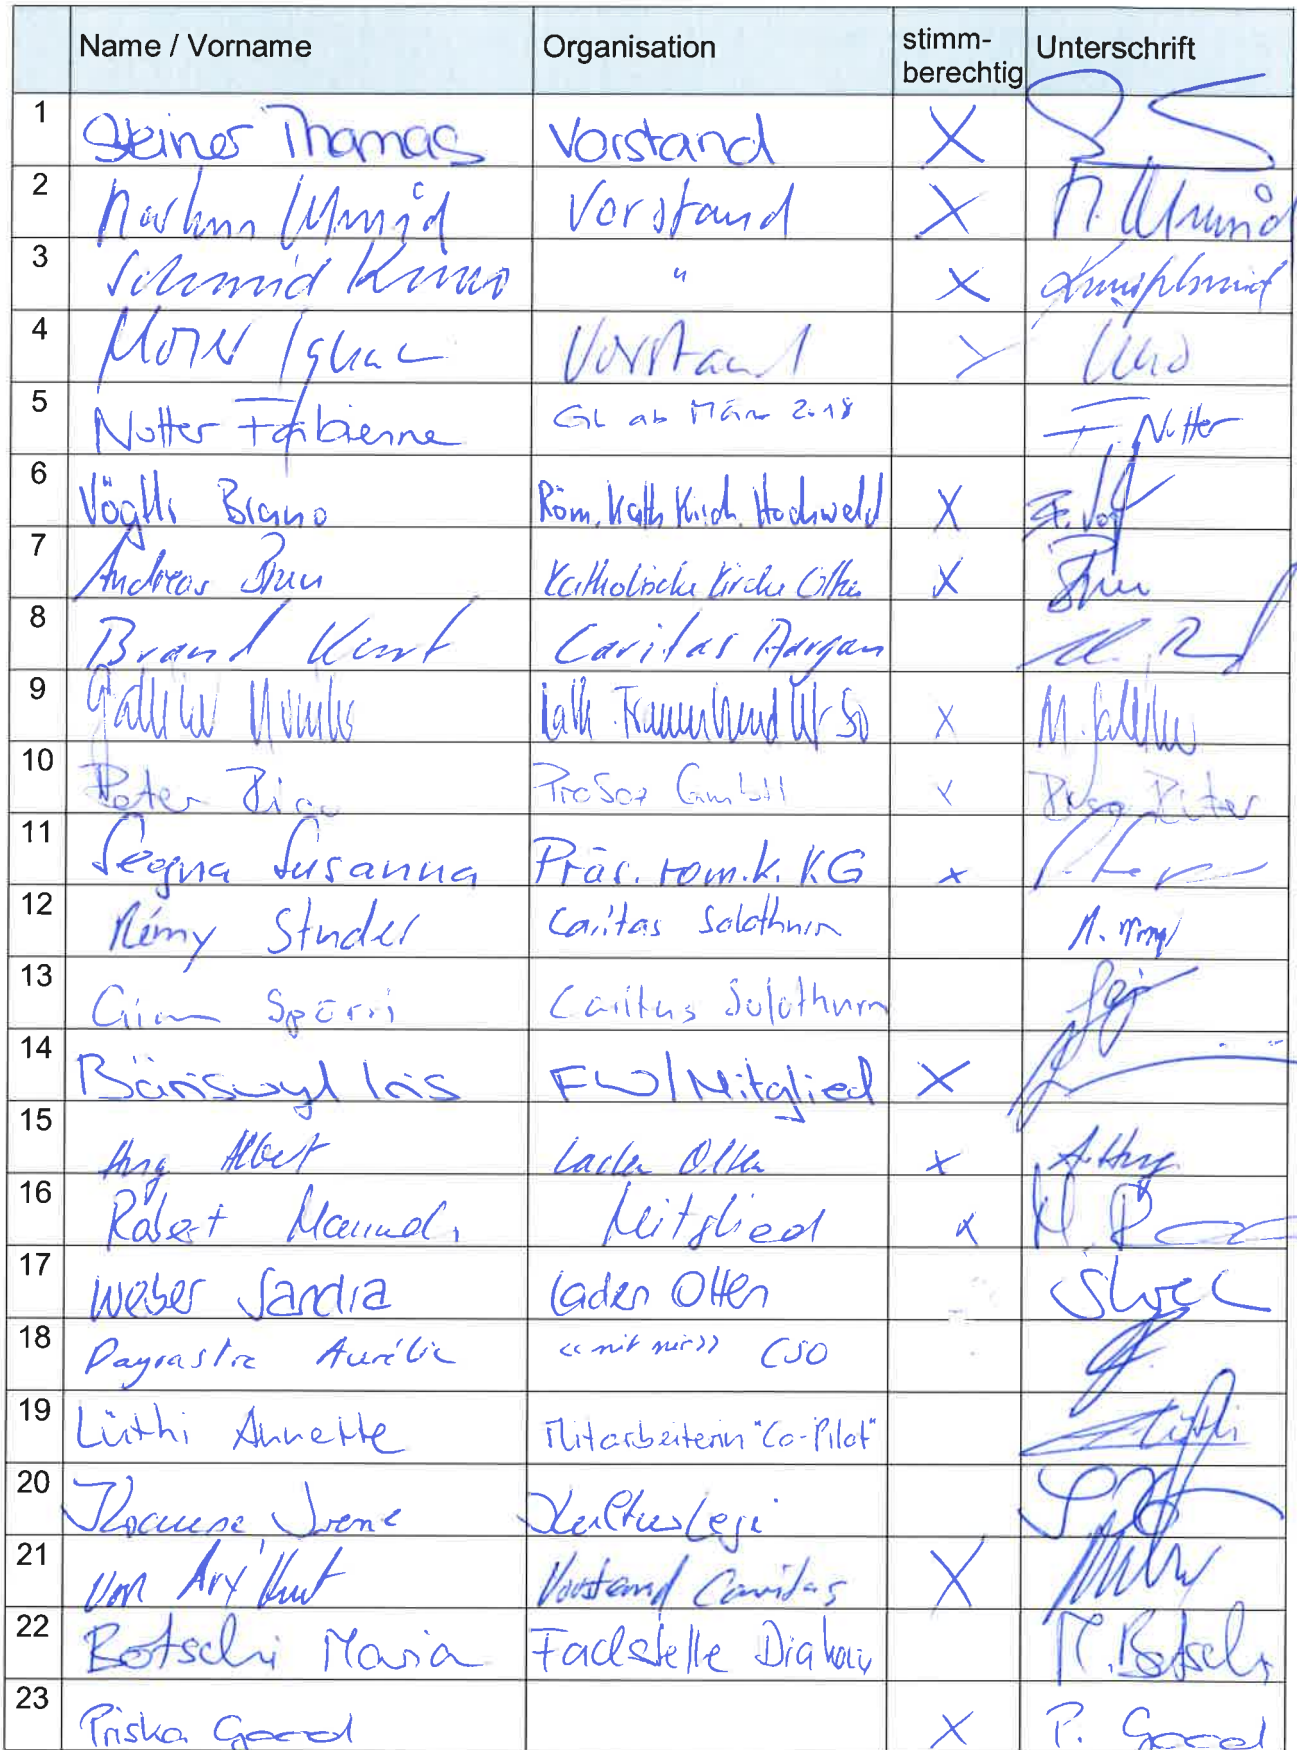 Name / Vorname Organisation stimm-berechtig Unterschrift
1 Steiner Thomas Vorstand X
2 Markus Schmid Vorstand X M. Schmid
3 Schmid Kuno " X Kuno Schmid
4 Moser Ignac Vorstand X
5 Notter Fabienne GL ab März 2018 F. Notter
6 Vögtli Bruno Röm. Kath Kirch. Hochwald X
7 Andreas Brun Katholische Kirche Olten X Brun
8 Brand Kurt Caritas Aargau
9 Kath. Frauenbund Kt So X
10 Peter ProSoz GmbH X
11 Segna Susanna Präs. röm. k. KG X
12 Rémy Studer Caritas Solothurn
13 Spörri Caritas Solothurn
14 Bäriswyl Iris FW/Mitglied X
15 Hug Albert Laden Olten X A. Hug
16 Robert Manuela Mitglied X
17 Weber Sandra Laden Olten
18 Payrastre Aurélie «mit mir» CSO
19 Lüthi Annette Mitarbeiterin "Co-Pilot" Lüthi
20 Krause Irene KulturLegi
21 von Arx Kurt Vorstand Caritas X
22 Botschi Maria Fachstelle Diakonie M. Botschi
23 Priska Good X P. Good